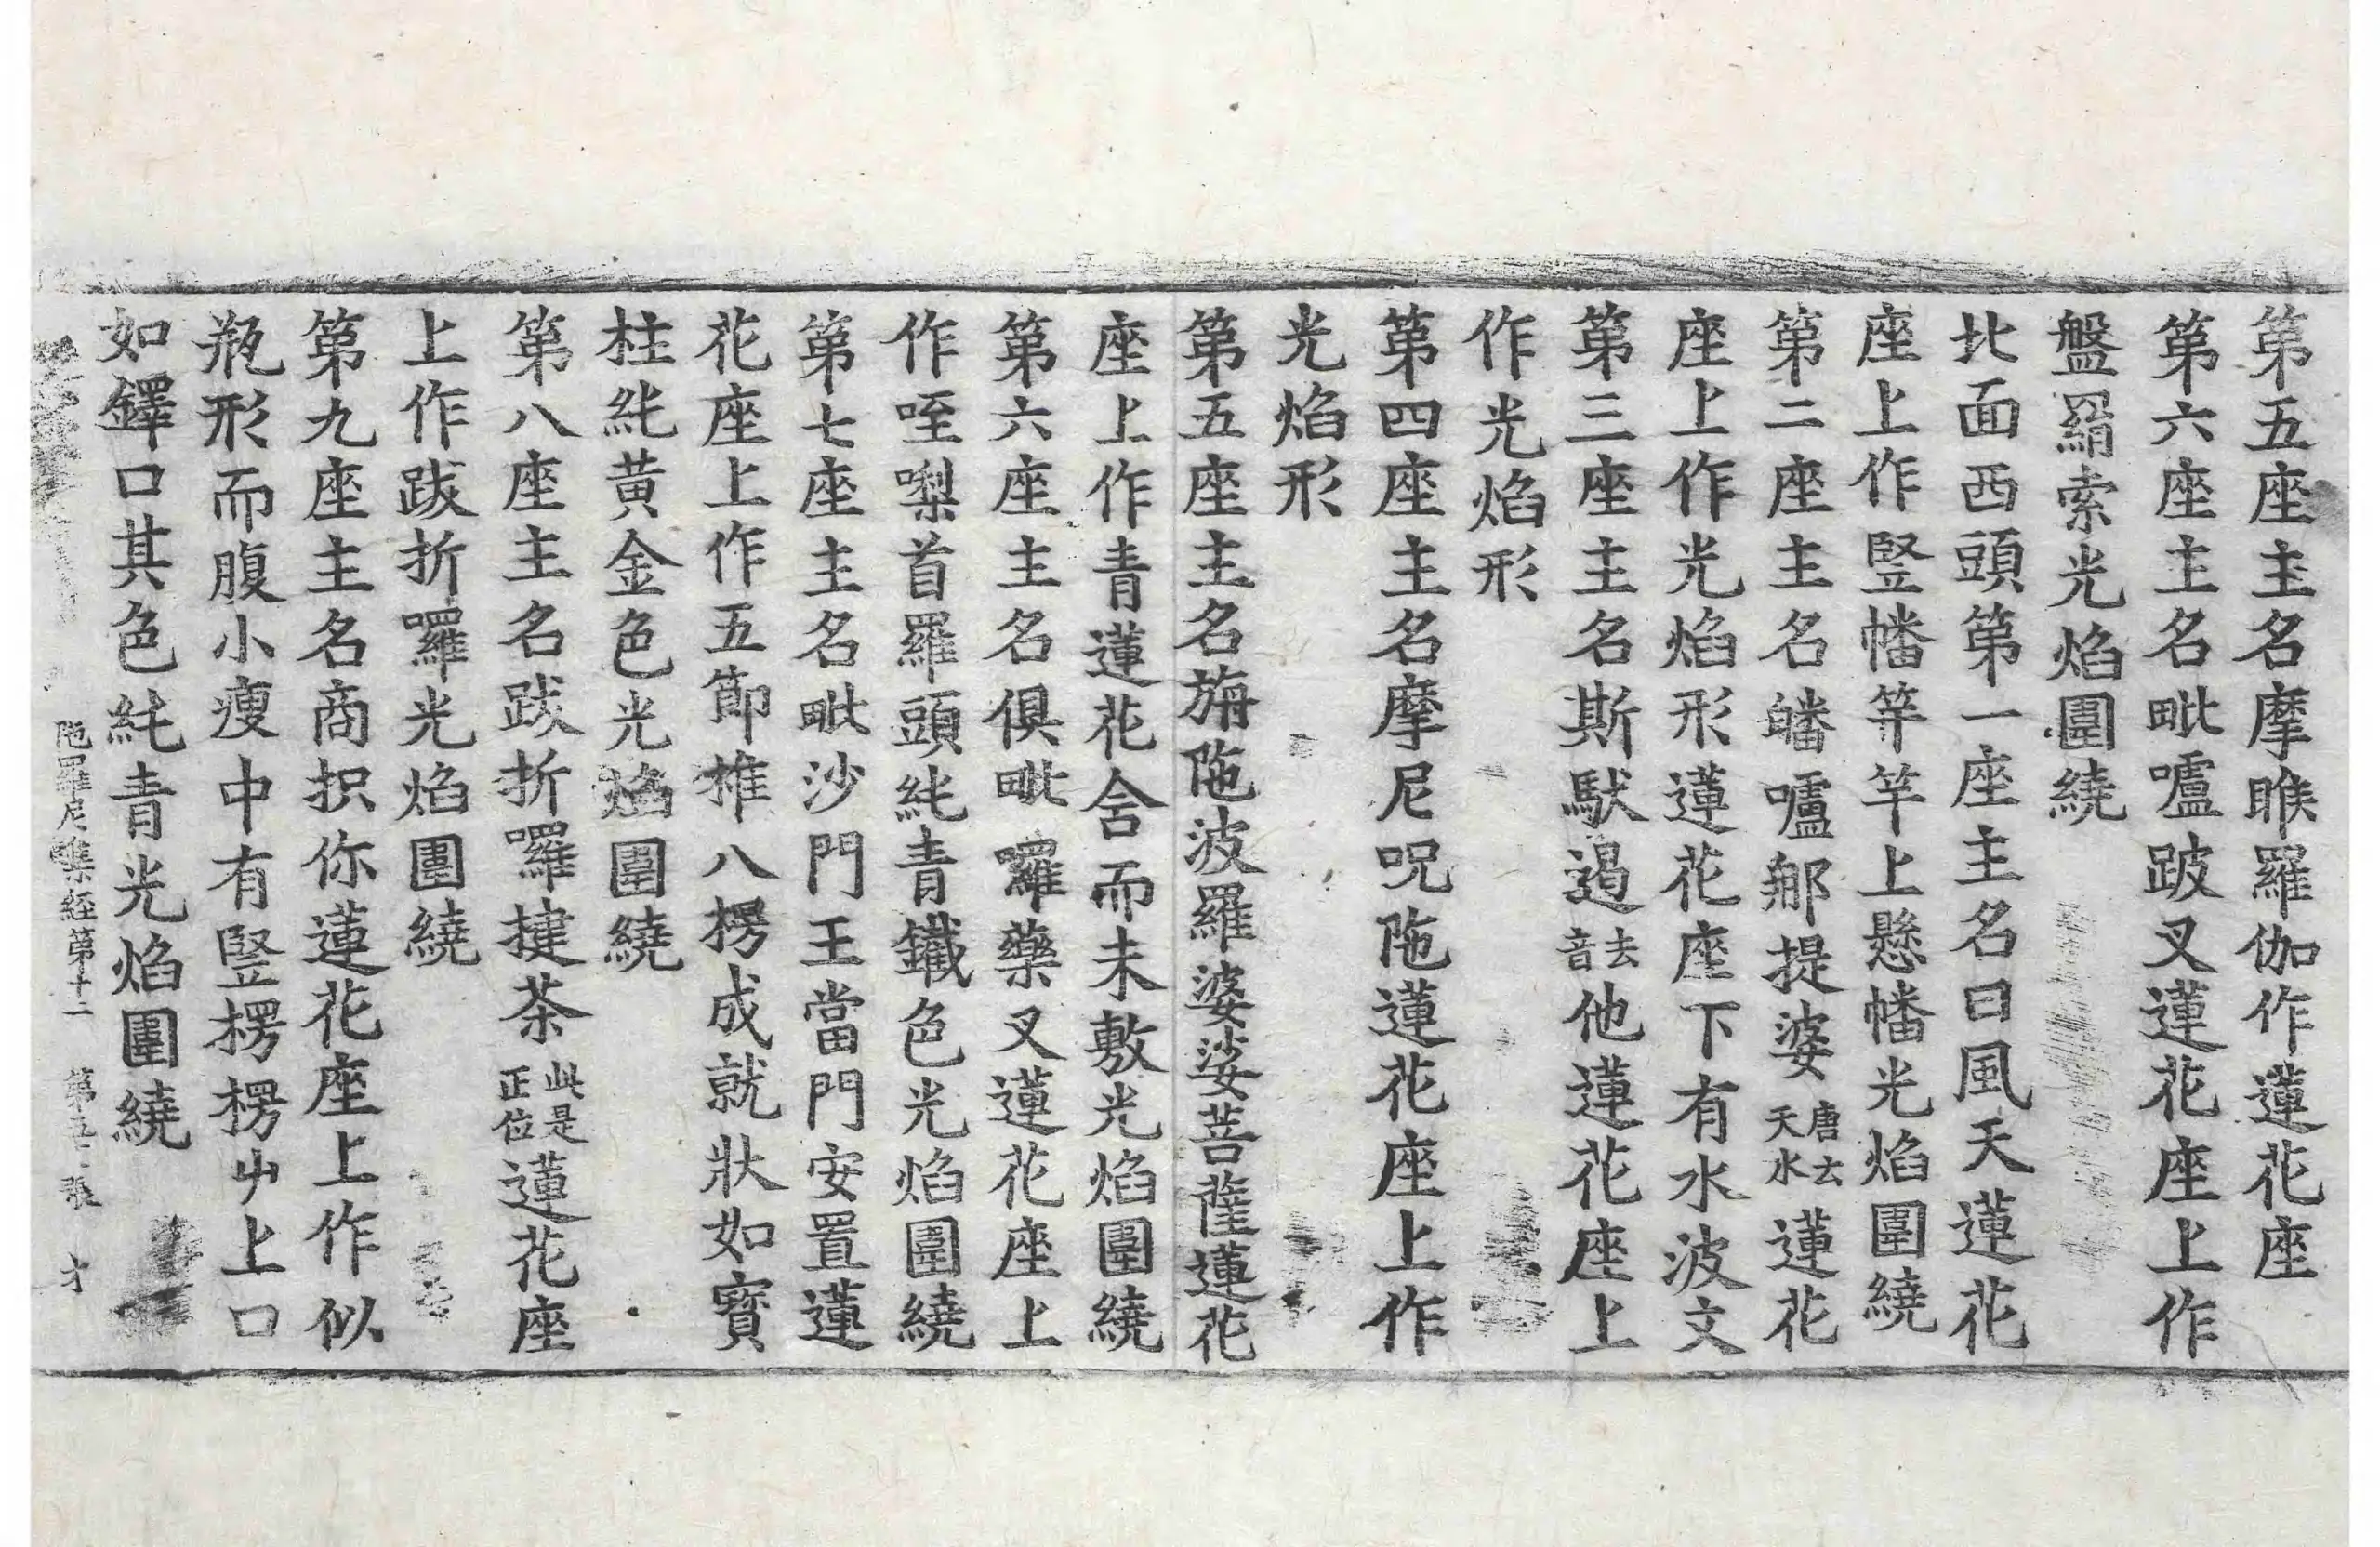 第五座主名摩睺羅伽作蓮花座
第六座主名毗嚧跛叉蓮花座上作
盤羂索光焰圍繞
北面西頭第一座主名曰風天蓮花
座上作竪幡竿竿上懸幡光焰圍繞
第二座主名皤嚧𨚗提婆唐云水天蓮花
座上作光焰形蓮花座下有水波文
第三座主名斯馱遏去音他蓮花座上
作光焰形
第四座主名摩尼呪陁蓮花座上作
光焰形
第五座主名旃陁波羅婆娑菩薩蓮花
座上作青蓮花含而未敷光焰圍繞
第六座主名俱毗囉藥叉蓮花座上
作咥㗚首羅頭純青鐵色光焰圍繞
第七座主名毗沙門王當門安置蓮
花座上作五節椎八楞成就狀如寶
柱純黃金色光焰圍繞
第八座主名跋折囉揵茶此是正位蓮花座
上作跋折囉光焰圍繞
第九座主名商抧你蓮花座上作似
瓶形而腹小瘦中有竪楞楞出上口
如鐸口其色純青光焰圍繞
陁羅尼集經第十二 第五 張 才